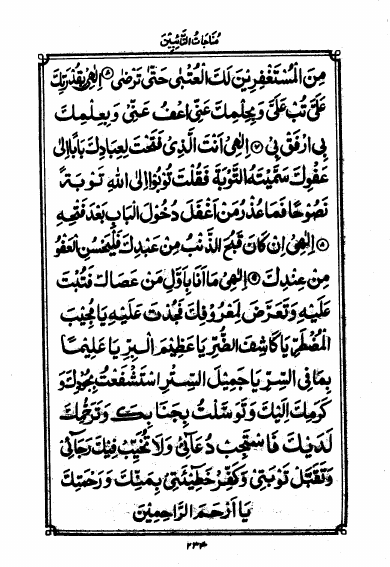 مُنَاجَاتُ التَّائِبِيْنَ
مِنَ الْمُسْتَغْفِرِيْنَ لَكَ الْعُتْبٰى حَتّٰى تَرْضٰى ۞ اِلٰهِىْ بِقُدْرَتِكَ
عَلَىَّ تُبْ عَلَىَّ وَبِحِلْمِكَ عَنِّى اعْفُ عَنِّىْ وَبِعِلْمِكَ
بِىْ ارْفَقْ بِىْ ۞ اِلٰهِىْ اَنْتَ الَّذِىْ فَتَحْتَ لِعِبَادِكَ بَابًا اِلٰى
عَفْوِكَ سَمَّيْتَهُ التَّوْبَةَ فَقُلْتَ تُوْبُوْا اِلَى اللهِ تَوْبَةً
نَصُوْحًا فَمَا عُذْرُ مَنْ اَغْفَلَ دُخُوْلَ الْبَابِ بَعْدَ فَتْحِهٖ
۞ اِلٰهِىْ اِنْ كَانَ قَبُحَ الذَّنْبُ مِنْ عَبْدِكَ فَلْيَحْسُنِ الْعَفْوُ
مِنْ عِنْدِكَ ۞ اِلٰهِىْ مَا اَنَا بِاَوَّلِ مَنْ عَصَاكَ فَتُبْتَ
عَلَيْهِ وَتَعَرَّضَ لِمَعْرُوْفِكَ فَجُدْتَ عَلَيْهِ يَا مُجِيْبَ
الْمُضْطَرِّ يَا كَاشِفَ الضُّرِّ يَا عَظِيْمَ الْبِرِّ يَا عَلِيْمًا
بِمَا فِى السِّرِّ يَا جَمِيْلَ السِّتْرِ اسْتَشْفَعْتُ بِجُوْدِكَ وَ
كَرَمِكَ اِلَيْكَ وَتَوَسَّلْتُ بِجَنَابِكَ وَتَرَحُّمِكَ
لَدَيْكَ فَاسْتَجِبْ دُعَائِىْ وَلَا تُخَيِّبْ فِيْكَ رَجَائِىْ
وَتَقَبَّلْ تَوْبَتِىْ وَكَفِّرْ خَطِيْئَتِىْ بِمَنِّكَ وَرَحْمَتِكَ
يَا اَرْحَمَ الرَّاحِمِيْنَ
۲۳۴